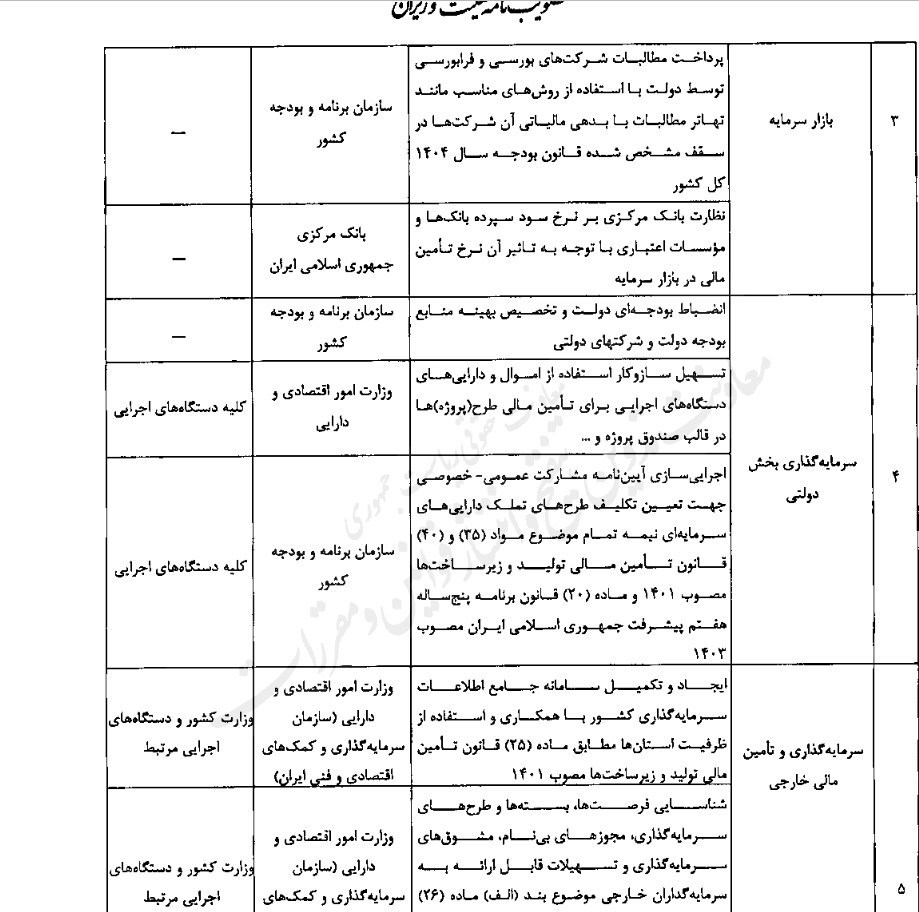 تصویب‌نامه هیئت وزیران
۳
بازار سرمایه
پرداخت مطالبات شرکت‌های بورسی و فرابورسی
توسط دولت با استفاده از روش‌های مناسب مانند
تهاتر مطالبات با بدهی مالیاتی آن شرکت‌ها در
سقف مشخص شده قانون بودجه سال ۱۴۰۴
کل کشور
سازمان برنامه و بودجه
کشور
—
نظارت بانک مرکزی بر نرخ سود سپرده بانک‌ها و
مؤسسات اعتباری با توجه به تاثیر آن نرخ تأمین
مالی در بازار سرمایه
بانک مرکزی
جمهوری اسلامی ایران
—
۴
سرمایه‌گذاری بخش
دولتی
انضباط بودجه‌ای دولت و تخصیص بهینه منابع
بودجه دولت و شرکتهای دولتی
سازمان برنامه و بودجه
کشور
—
تسهیل سازوکار استفاده از اموال و دارایی‌های
دستگاه‌های اجرایی برای تأمین مالی طرح(پروژه)ها
در قالب صندوق پروژه و ...
وزارت امور اقتصادی و
دارایی
کلیه دستگاه‌های اجرایی
اجرایی‌سازی آیین‌نامه مشارکت عمومی- خصوصی
جهت تعیین تکلیف طرح‌های تملک دارایی‌های
سرمایه‌ای نیمه تمام موضوع مواد (۳۵) و (۴۰)
قانون تأمین مالی تولید و زیرساخت‌ها
مصوب ۱۴۰۱ و ماده (۲۰) قانون برنامه پنج‌ساله
هفتم پیشرفت جمهوری اسلامی ایران مصوب
۱۴۰۳
سازمان برنامه و بودجه
کشور
کلیه دستگاه‌های اجرایی
۵
سرمایه‌گذاری و تأمین
مالی خارجی
ایجاد و تکمیل سامانه جامع اطلاعات
سرمایه‌گذاری کشور با همکاری و استفاده از
ظرفیت استان‌ها مطابق ماده (۲۵) قانون تأمین
مالی تولید و زیرساخت‌ها مصوب ۱۴۰۱
وزارت امور اقتصادی و
دارایی (سازمان
سرمایه‌گذاری و کمک‌های
اقتصادی و فنی ایران)
وزارت کشور و دستگاه‌های
اجرایی مرتبط
شناسایی فرصت‌ها، بسته‌ها و طرح‌های
سرمایه‌گذاری، مجوزهای بی‌نام، مشوق‌های
سرمایه‌گذاری و تسهیلات قابل ارائه به
سرمایه‌گذاران خارجی موضوع بند (الف) ماده (۲۶)
وزارت امور اقتصادی و
دارایی (سازمان
سرمایه‌گذاری و کمک‌های
وزارت کشور و دستگاه‌های
اجرایی مرتبط